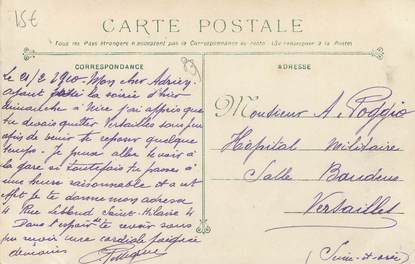 15€
CARTE POSTALE
Tous les Pays étrangers n'acceptent pas la Correspondance au recto. (Se renseigner à la Poste)
CORRESPONDANCE
ADRESSE
le 21/2 1910. Mon cher Adrien
ayant la soirée d'hier
dimanche à Nice j'ai appris que
tu devais quitter Versailles sous peu
afin de venir te reposer quelque
temps. Je pense aller te voir à
la gare si toutefois tu passes à
une heure raisonnable et a cet
effet je te donne mon adresse
4 Rue Leblond Saint-Hilaire 4
Dans l'espoir de te revoir sous
peu reçois une cordiale poignée
de mains
Monsieur A. Poggio
Hôpital Militaire
Salle Baudens
Versailles
(Seine-et-Oise)